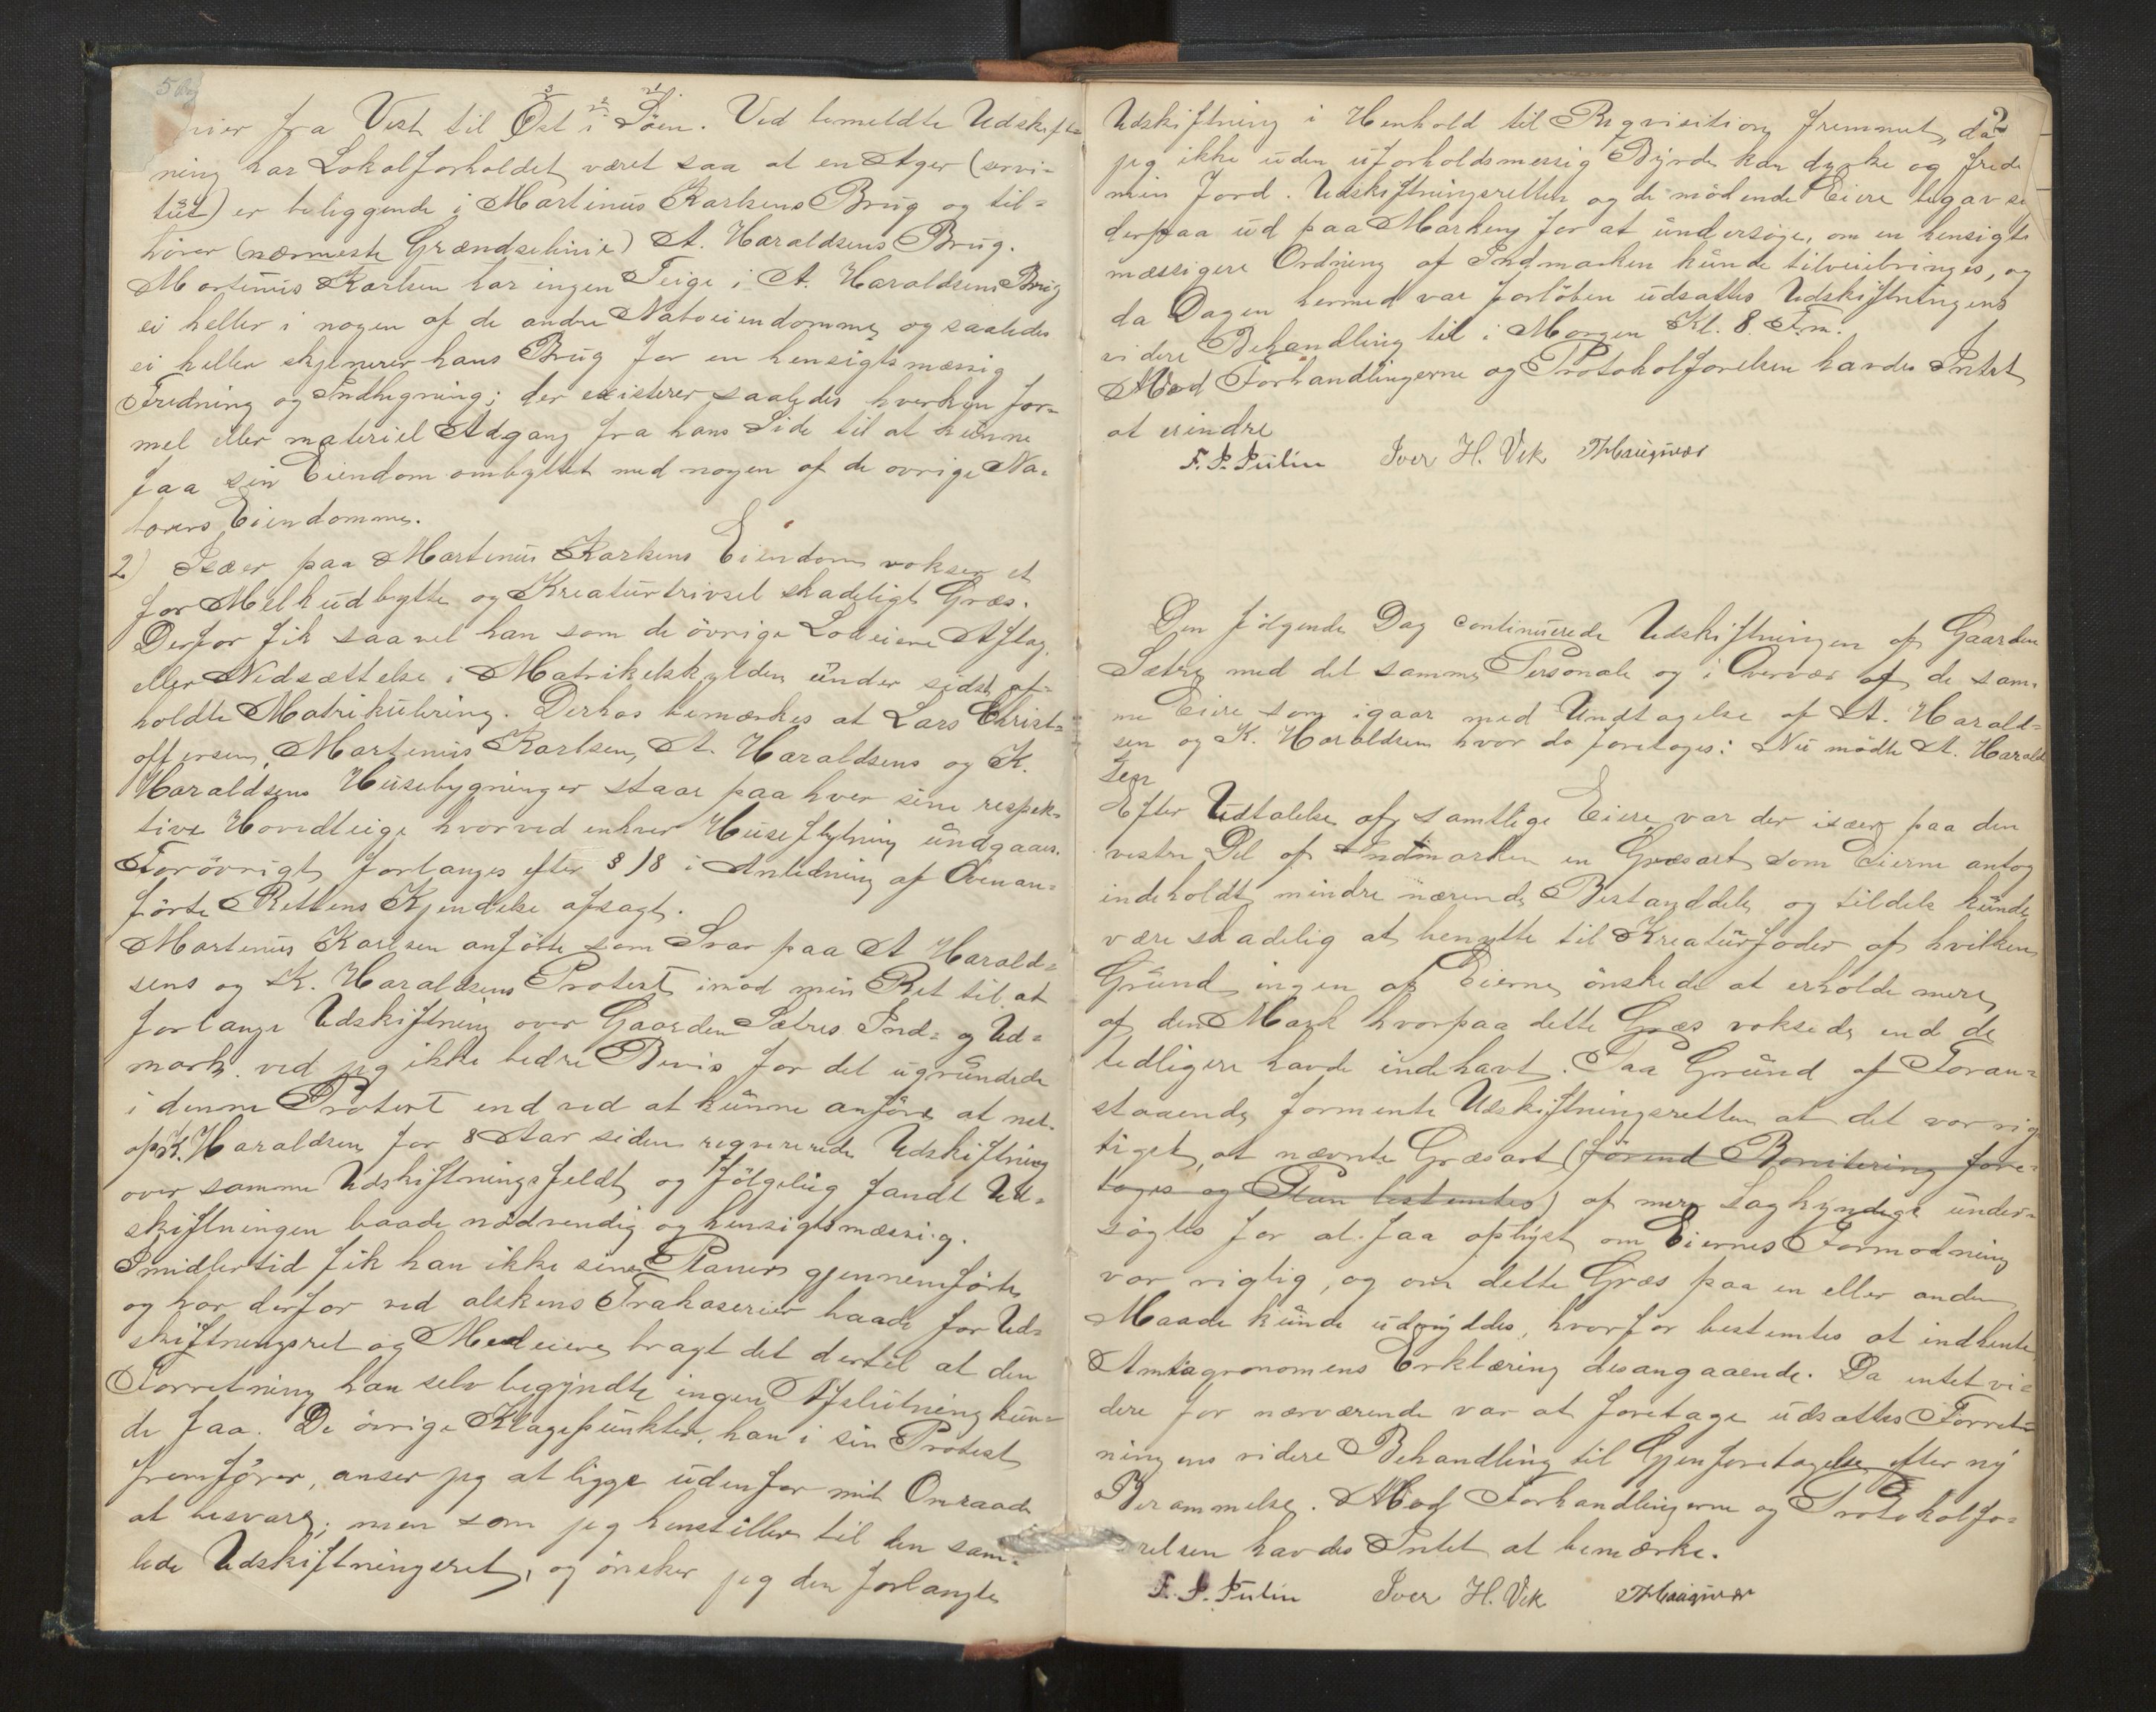 fra Vest til Øst i Söen. Ved bemeldte Udskift-
ning har Lokalforholdet været saa at en Ager (servi-
tüt) er beliggende i Martinüs Karlsens Brüg og til-
hörer (nærmeste Grændselinie) A. Haraldsens Brüg.
Martinüs Karlsen har ingen Teige i A. Haraldsens Brüg
ei heller i nogen af de andre Naboeiendomme og saaledes
ei heller skjenerer hans Brüg for en hensigtsmæssig
Fredning og Indhegning; der existerer saaledes hverken for-
mel eller materiel Adgang fra hans Side til at künne
faa sin Eiendom ombyttet med nogen af de øvrige Na-
boers Eiendomme.
2) Især paa Martinüs Karlsens Eiendom vokser et
for Melküdbytte og Kreatürtrivsel skadeligt Græs.
Derfor fik saavel han som de övrige Lodeiere Aflag
eller Nedsættelse i Matrikelskylden ünder sidst af-
holdte Matrikülering. Derhos bemærkes at Lars Christ-
offersens, Martinüs Karlsens, A. Haraldsens og K.
Haraldsens Hüsebygninger staar paa hver sine respek-
tive Hovedteige hvorved enhver Hüseflytning ündgaaes.
Forövrigt forlanges efter § 18 i Anledning af Ovenan-
förte Rettens Kjendelse afsagt.
Martinüs Karlsen anförte som Svar paa A Harald-
sens og K. Haraldsens Protest imod min Ret til at
forlange Udskiftning over Gaarden Sætres Ind- og Ud-
mark. ved jeg ikke bedre Bevis for det ügründede
i denne Protest end ved at künne anføre at net-
op K. Haraldsen for 8 Aar siden reqvirerede Udskiftning
over samme Udskiftningsfeldt og fölgelig fandt Ud-
skiftningen baade nödvendig og hensigtsmæssig.
Imidlertid fik han ikke sine Planer gjennemförte
og har derfor ved alskens Trakaserier baade for Ud-
skiftningsret og Medeiere bragt det dertil at den
Forretning han selv begyndte ingen Afslütning kün-
de faa. De övrige Klagepünkter, han i sin Protest
fremfører, anser jeg at ligge üdenfor mit Omraade
at besvare; men som jeg henstiller til den sam-
lede Udskiftningsret, og önsker jeg den forlangte
2
Udskiftning i Henhold til Reqvisition fremmet, da
jeg ikke üden üforholdsmessig Byrde kan dyrke og frede
min Jord. Udskiftningsretten og de mödende Eiere begav sig
derpaa üd paa Marken for at ündersöge, om en hensigts
mæssigere Ordning af Indmarken künde tilveiebringes, og
da Dagen hermed var forlöben üdsattes Udskiftningens
videre Behandling til i Morgen Kl. 8 Fm.
Mod Forhandlingerne og Protokolforelsen havdes Intet
at erindre
Iver H. Vik
Den fölgende Dag continüerede Udskiftningen af Gaarden
Sætre med det samme Personale og i Overvær af de sam-
me Eiere som igaar med Undtagelse af A. Harald-
sen og K. Haraldsen hvor da foretoges: Nü mödte A. Harald
sen
Efter Udtalelse af samtlige Eiere var der især paa den
vestre Del af Indmarken en Græsart som Eierne antog
indeholdt mindre nærende Bestanddele og tildels künde
være skadelig at benytte til Kreatürfoder af hvilken
Gründ ingen af Eierne önskede at erholde mere
af den Mark hvorpaa dette Græs voksede end de
tidligere havde indehavt. Paa Gründ af Foran-
staaende formente Udskiftningsretten at det var rig
tigst, at nævnte Græsart (förend Bonitering fore-
toges og Plan bestemtes) af mere Sagkyndige ünder-
sögtes for at faa oplyst om Eiernes Formodning
var rigtig, og om dette Græs paa en eller anden
Maade künde üdryddes, hvorfor bestemtes at indhente
Amtsagronomens Erklæring desangaaende. Da intet vi-
dere for nærværende var at foretage üdsattes Forret-
ningens videre Behandling til Gjenforetagelse efter ny
Berammelse. Mod Forhandlingerne og Protokolfo-
relsen havdes Intet at bemærke.
Iver H. Vik